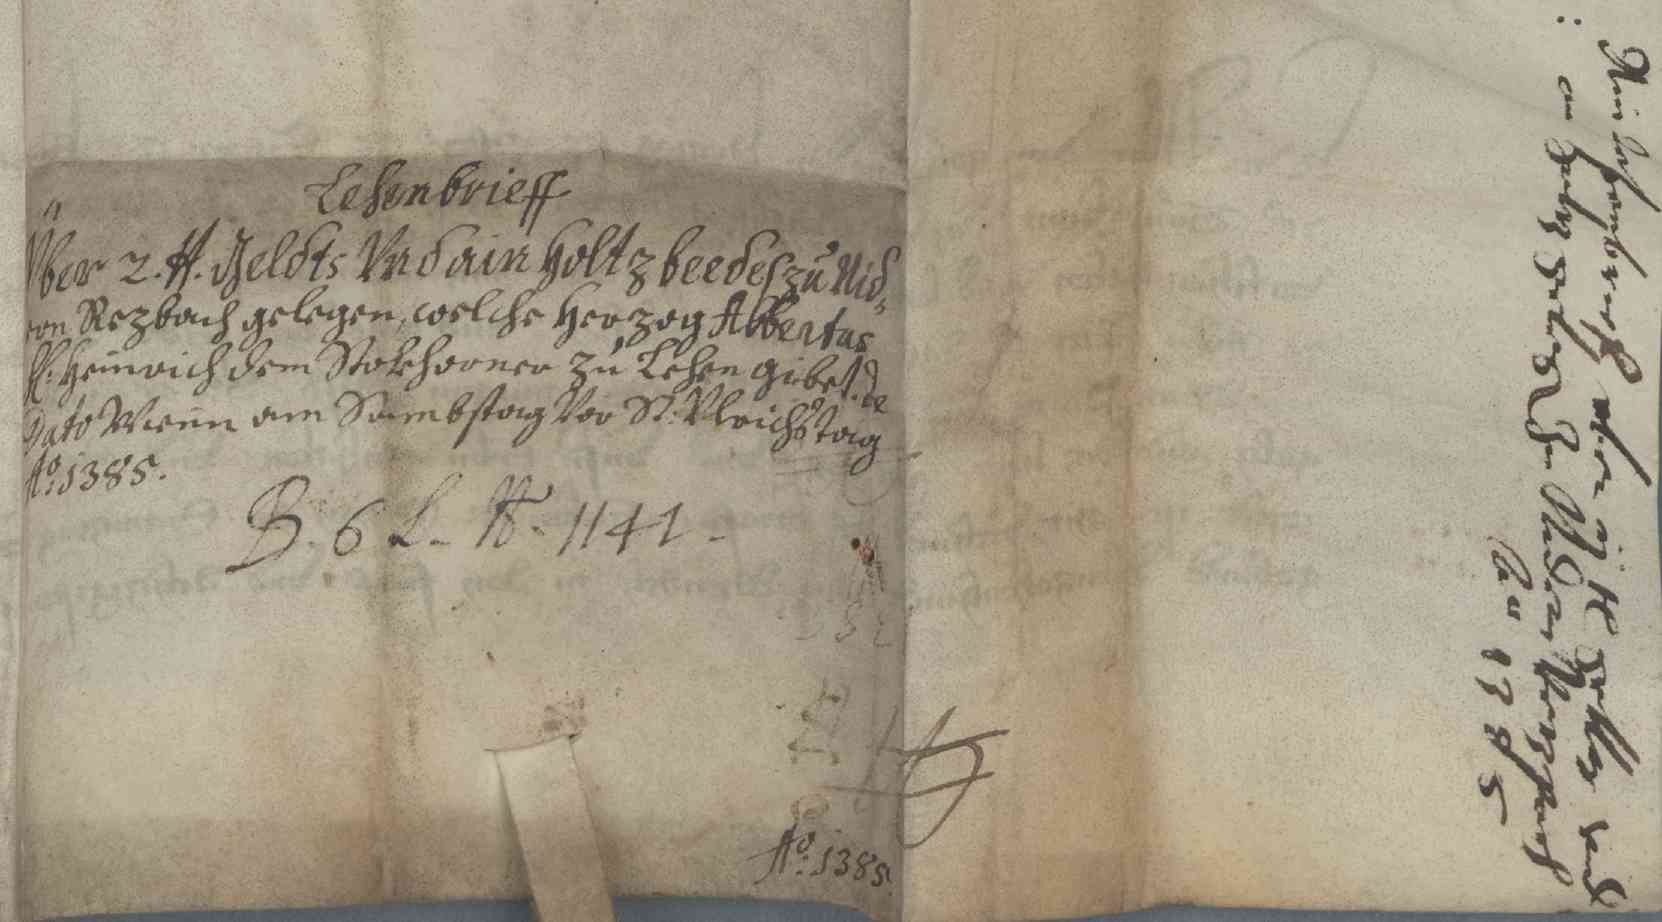 Lehenbrieff
Über 2. ℔. Geldts Vnd ain Holtz beedes zu Nid-
ern Rezbach gelegen, welche Herzog Albertus
H: Heinrich dem Stokhorner zu Lehen gibet. De
Dato Wienn am Sambstag Vor St: Vlrichs tag
Ao: 1385.
B. 6 L. N. 1141.
Ao: 1385.
Ain lehenbrieff vber ij ℔ gelts vnd
ain holtz Nidern
Ao 1385